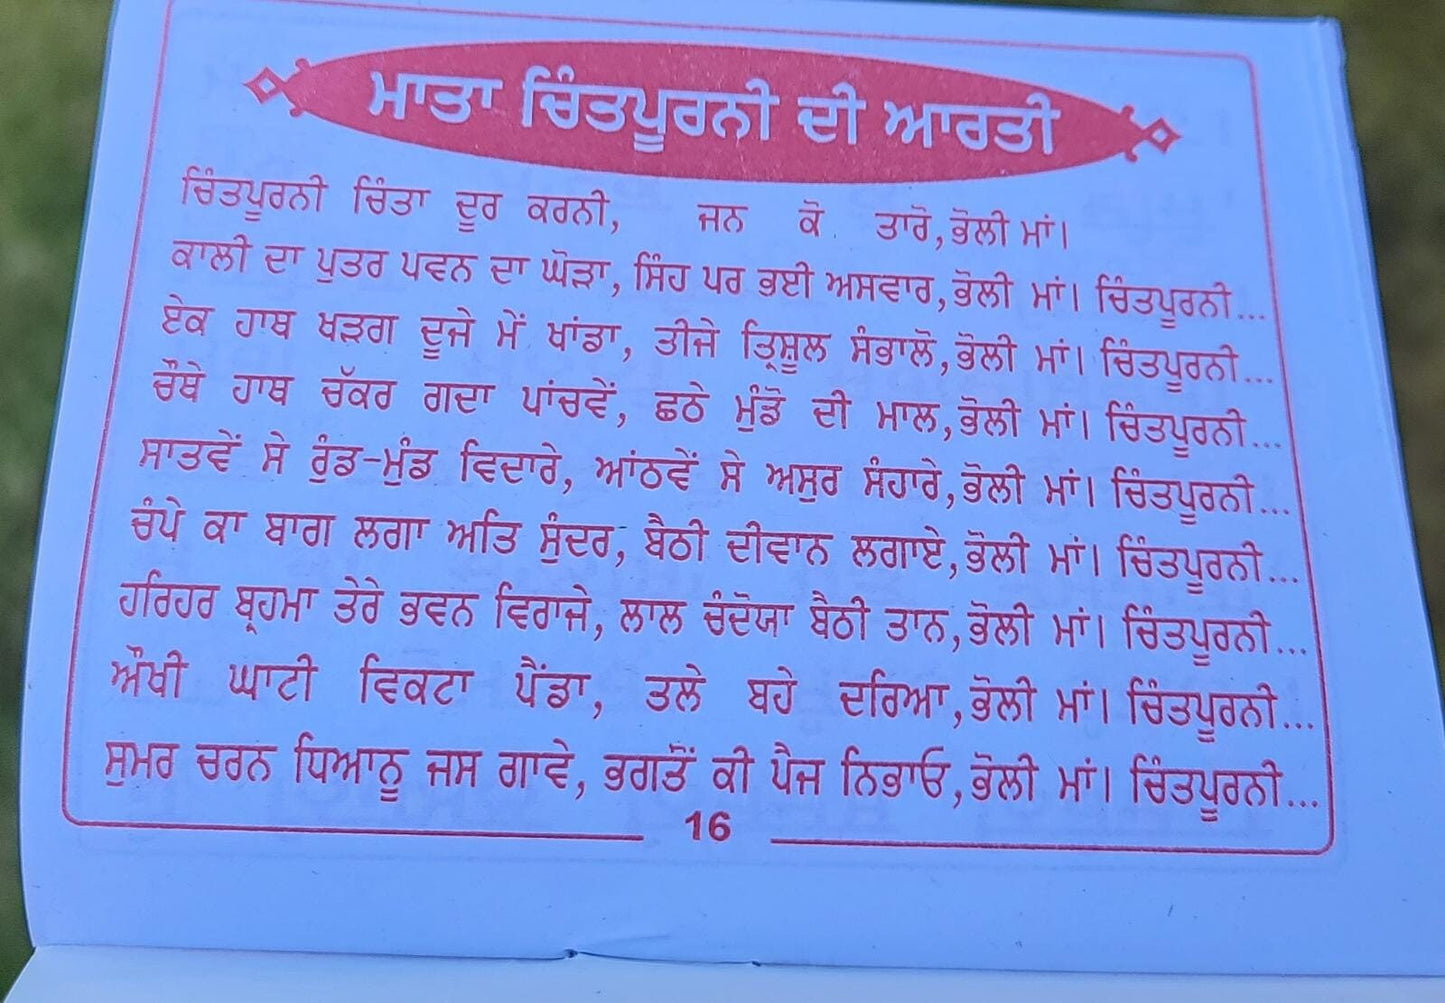 ਮਾਤਾ ਚਿੰਤਪੂਰਨੀ ਦੀ ਆਰਤੀ
ਚਿੰਤਪੂਰਨੀ ਚਿੰਤਾ ਦੂਰ ਕਰਨੀ, ਜਨ ਕੋ ਤਾਰੋ, ਭੋਲੀ ਮਾਂ।
ਕਾਲੀ ਦਾ ਪੁਤਰ ਪਵਨ ਦਾ ਘੋੜਾ, ਸਿੰਹ ਪਰ ਭਈ ਅਸਵਾਰ, ਭੋਲੀ ਮਾਂ। ਚਿੰਤਪੂਰਨੀ...
ਏਕ ਹਾਥ ਖੜਗ ਦੂਜੇ ਮੇਂ ਖਾਂਡਾ, ਤੀਜੇ ਤ੍ਰਿਸ਼ੂਲ ਸੰਭਾਲੋ, ਭੋਲੀ ਮਾਂ। ਚਿੰਤਪੂਰਨੀ...
ਚੌਥੇ ਹਾਥ ਚੱਕਰ ਗਦਾ ਪਾਂਚਵੇਂ, ਛਠੇ ਮੁੰਡੋ ਦੀ ਮਾਲ, ਭੋਲੀ ਮਾਂ। ਚਿੰਤਪੂਰਨੀ...
ਸਾਤਵੇਂ ਸੇ ਰੁੰਡ-ਮੁੰਡ ਵਿਦਾਰੇ, ਆਂਠਵੇਂ ਸੇ ਅਸੁਰ ਸੰਹਾਰੇ, ਭੋਲੀ ਮਾਂ। ਚਿੰਤਪੂਰਨੀ...
ਚੰਪੇ ਕਾ ਬਾਗ ਲਗਾ ਅਤਿ ਸੁੰਦਰ, ਬੈਠੀ ਦੀਵਾਨ ਲਗਾਏ, ਭੋਲੀ ਮਾਂ। ਚਿੰਤਪੂਰਨੀ...
ਹਰਿਹਰ ਬ੍ਰਹਮਾ ਤੇਰੇ ਭਵਨ ਵਿਰਾਜੇ, ਲਾਲ ਚੰਦੋਯਾ ਬੈਠੀ ਤਾਨ, ਭੋਲੀ ਮਾਂ। ਚਿੰਤਪੂਰਨੀ...
ਔਖੀ ਘਾਟੀ ਵਿਕਟਾ ਪੈਂਡਾ, ਤਲੇ ਬਹੇ ਦਰਿਆ, ਭੋਲੀ ਮਾਂ। ਚਿੰਤਪੂਰਨੀ...
ਸੁਮਰ ਚਰਨ ਧਿਆਨੂ ਜਸ ਗਾਵੇ, ਭਗਤੋਂ ਕੀ ਪੈਜ ਨਿਭਾਓ, ਭੋਲੀ ਮਾਂ। ਚਿੰਤਪੂਰਨੀ...
16